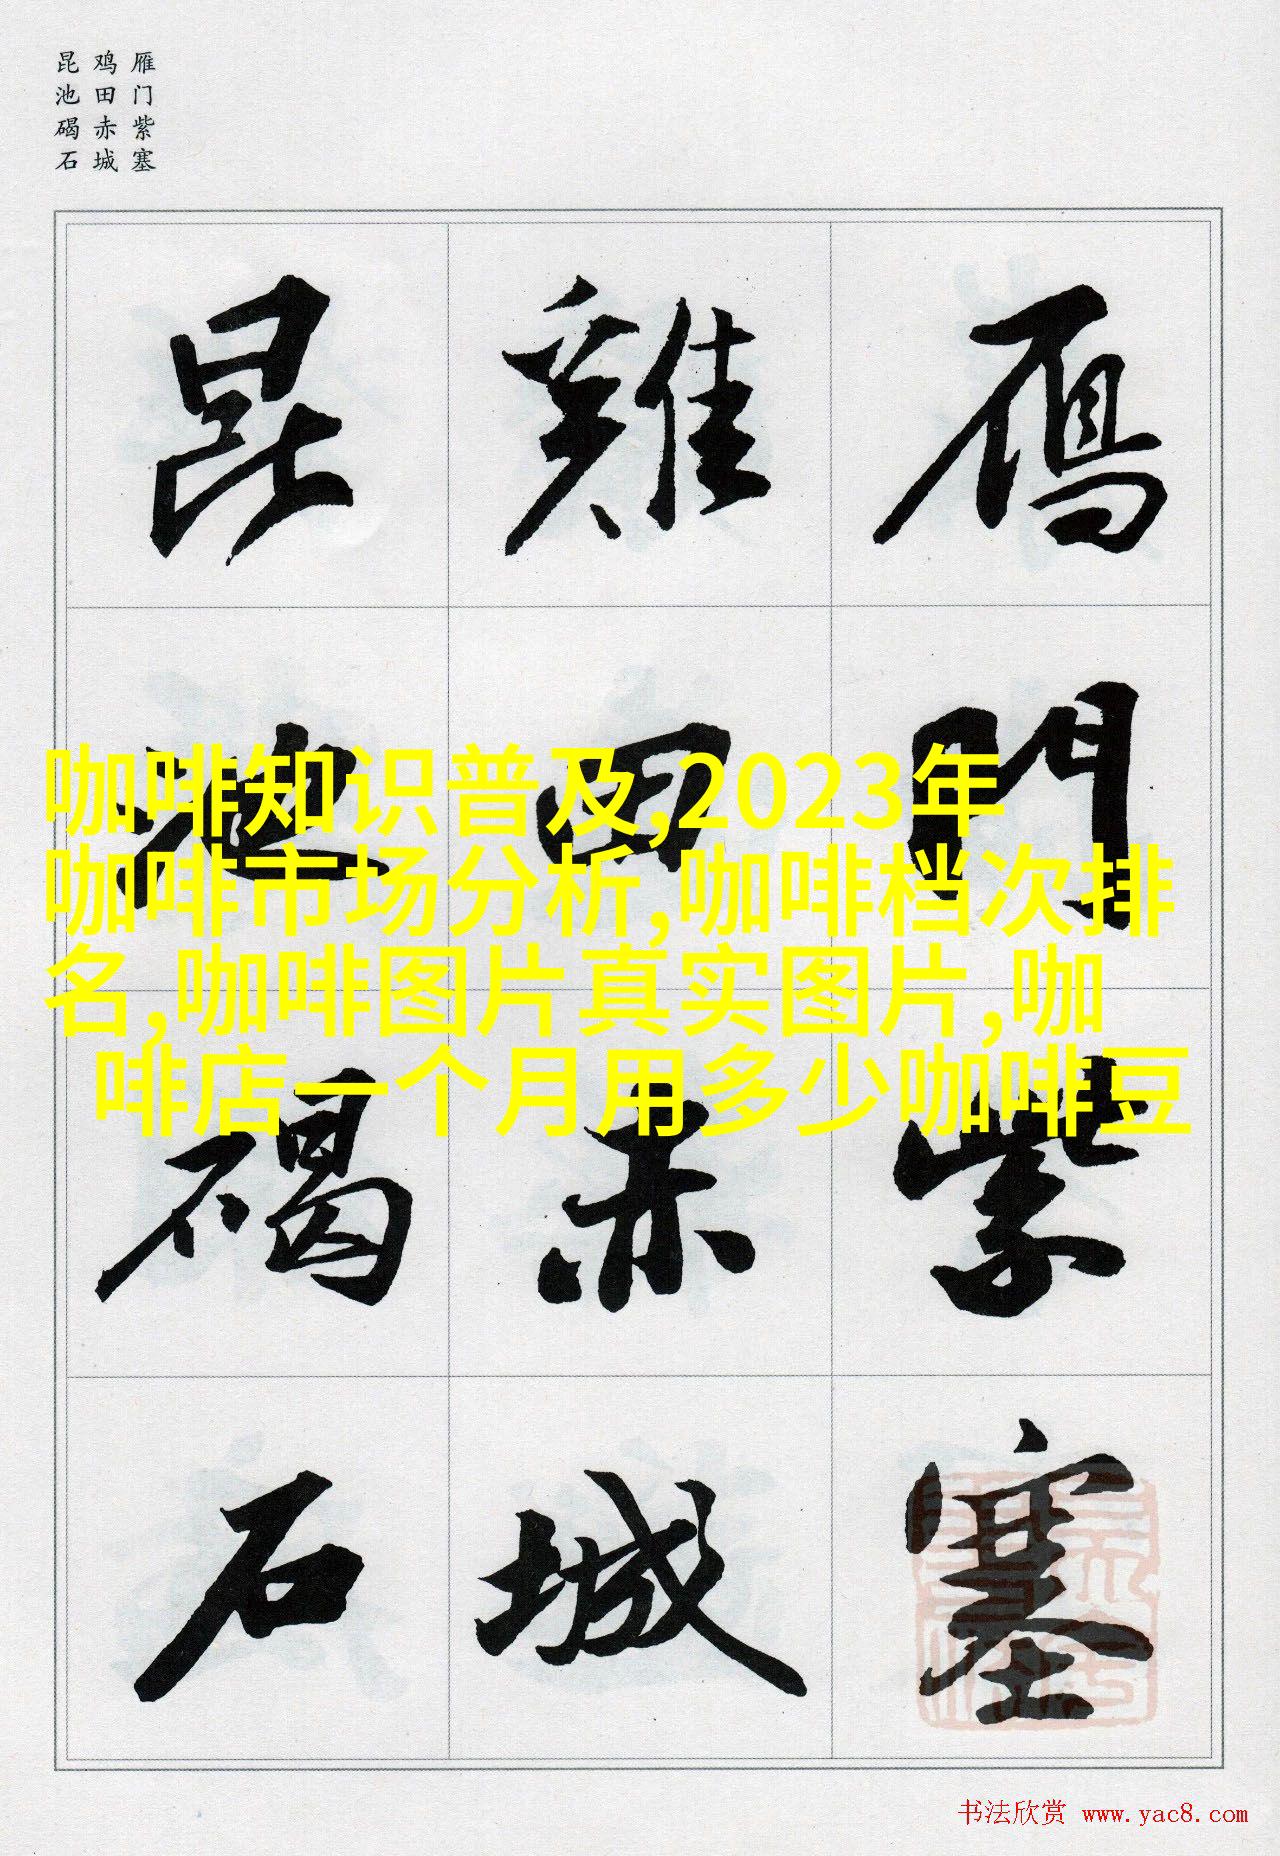 雁门紫塞
鸡田赤城
昆池碣石
鴈門紫塞
雞田赤城
昆池碣石
咖啡知识普及,2023年
咖啡市场分析,咖啡档次排
名,咖啡图片真实图片,咖
啡店一个月用多少咖啡豆
书法欣赏 www.yac8.com